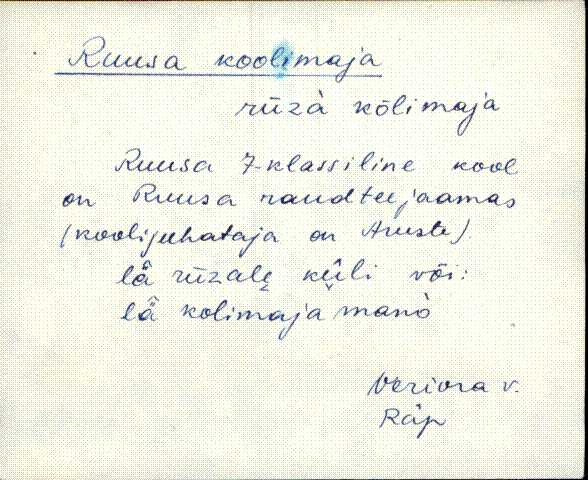 Ruusa koolimaja
rūzà kōlimaja
Ruusa 7-klassiline kool
on Ruusa raudteejaamas
(koolijuhataja on Aruste).
lǟ rūzalę kūli või:
lǟ kolimaja manò
Veriora v.
Räp